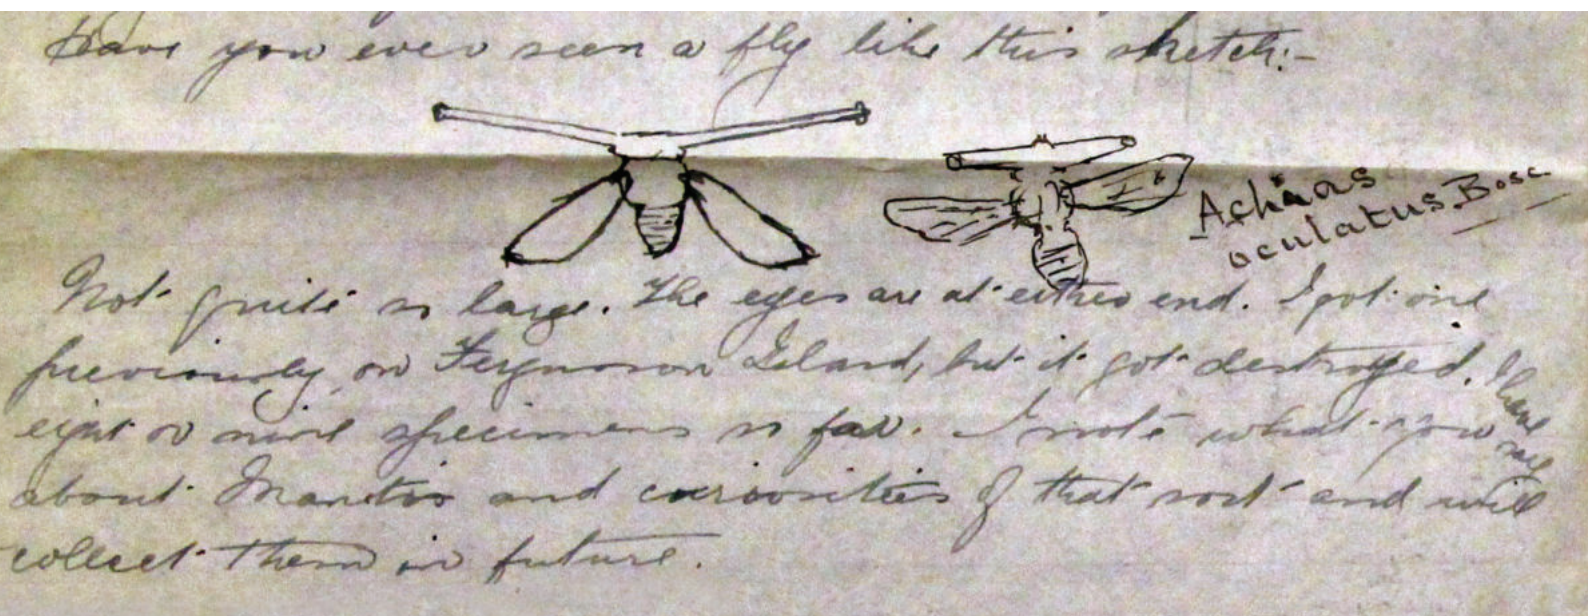 Have you ever seen a fly like this sketch:-
Achias
oculatus. Bosc
Not quite so large. The eyes are at either end. I got one
previously on Fergusson Island, but it got destroyed. I have
eight or nine specimens so far. I note what you say
about Mantis and curiosities of that sort and will
collect them in future.